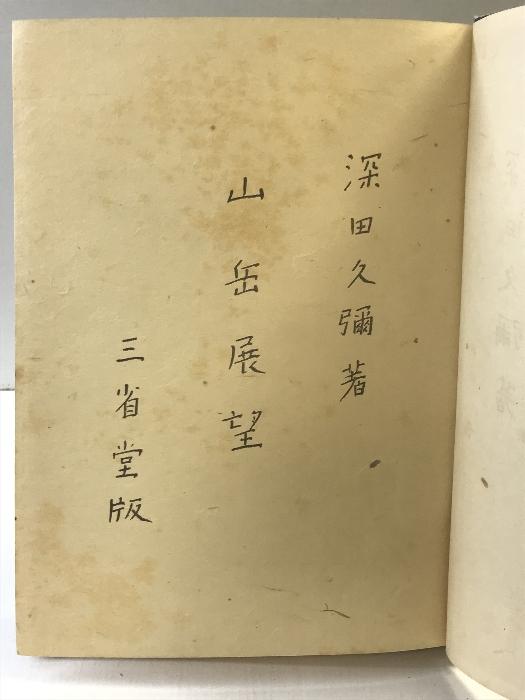 深田久彌著
山岳展望
三省堂版